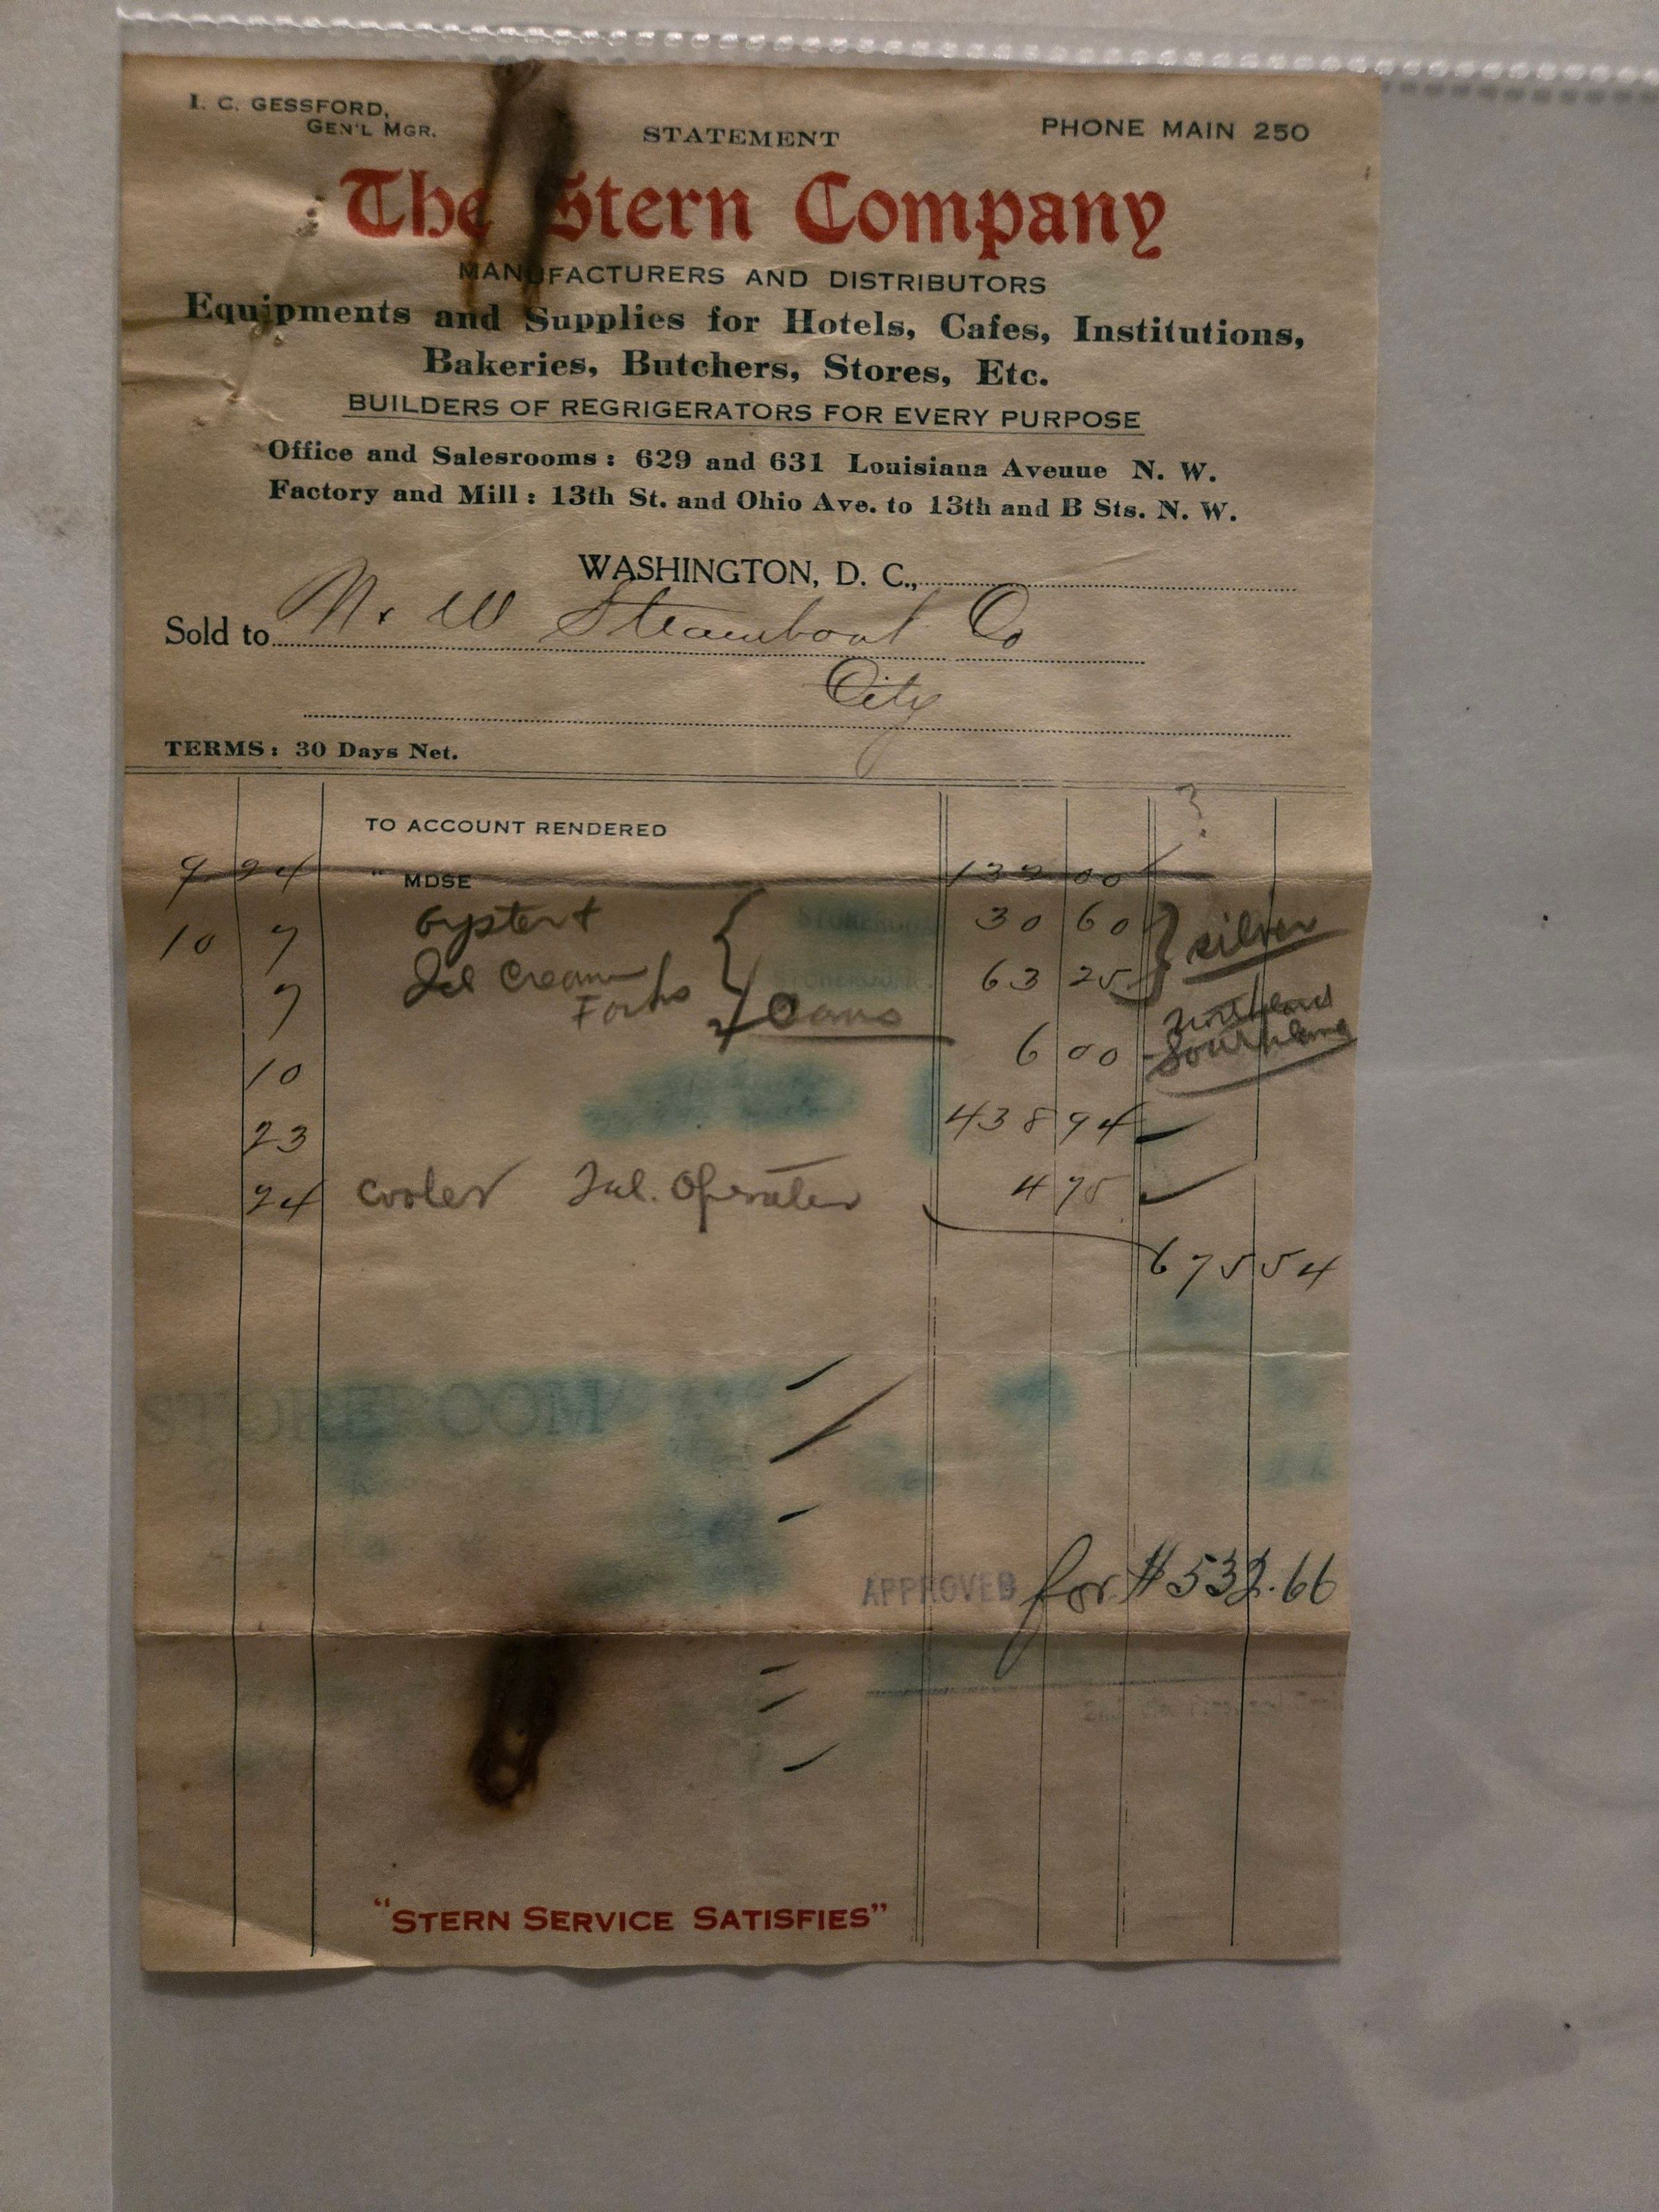 I. C. GESSFORD,
GEN'L MGR.
STATEMENT
PHONE MAIN 250
The Stern Company
MANUFACTURERS AND DISTRIBUTORS
Equipments and Supplies for Hotels, Cafes, Institutions,
Bakeries, Butchers, Stores, Etc.
BUILDERS OF REGRIGERATORS FOR EVERY PURPOSE
Office and Salesrooms: 629 and 631 Louisiana Avenue N. W.
Factory and Mill: 13th St. and Ohio Ave. to 13th and B Sts. N. W.
WASHINGTON, D. C.,
Sold to N. & W Steamboat Co
City
TERMS: 30 Days Net.
?
TO ACCOUNT RENDERED
9 24 " MDSE 132 00
10 7 Oyster & 30 60 silver
7 Ice Cream Forks 63 25
10 6 00 Southland
23 438 94
24 cooler Tel. Operator 4 75
675 54
STOREROOM
APPROVED for $532.66
"STERN SERVICE SATISFIES"